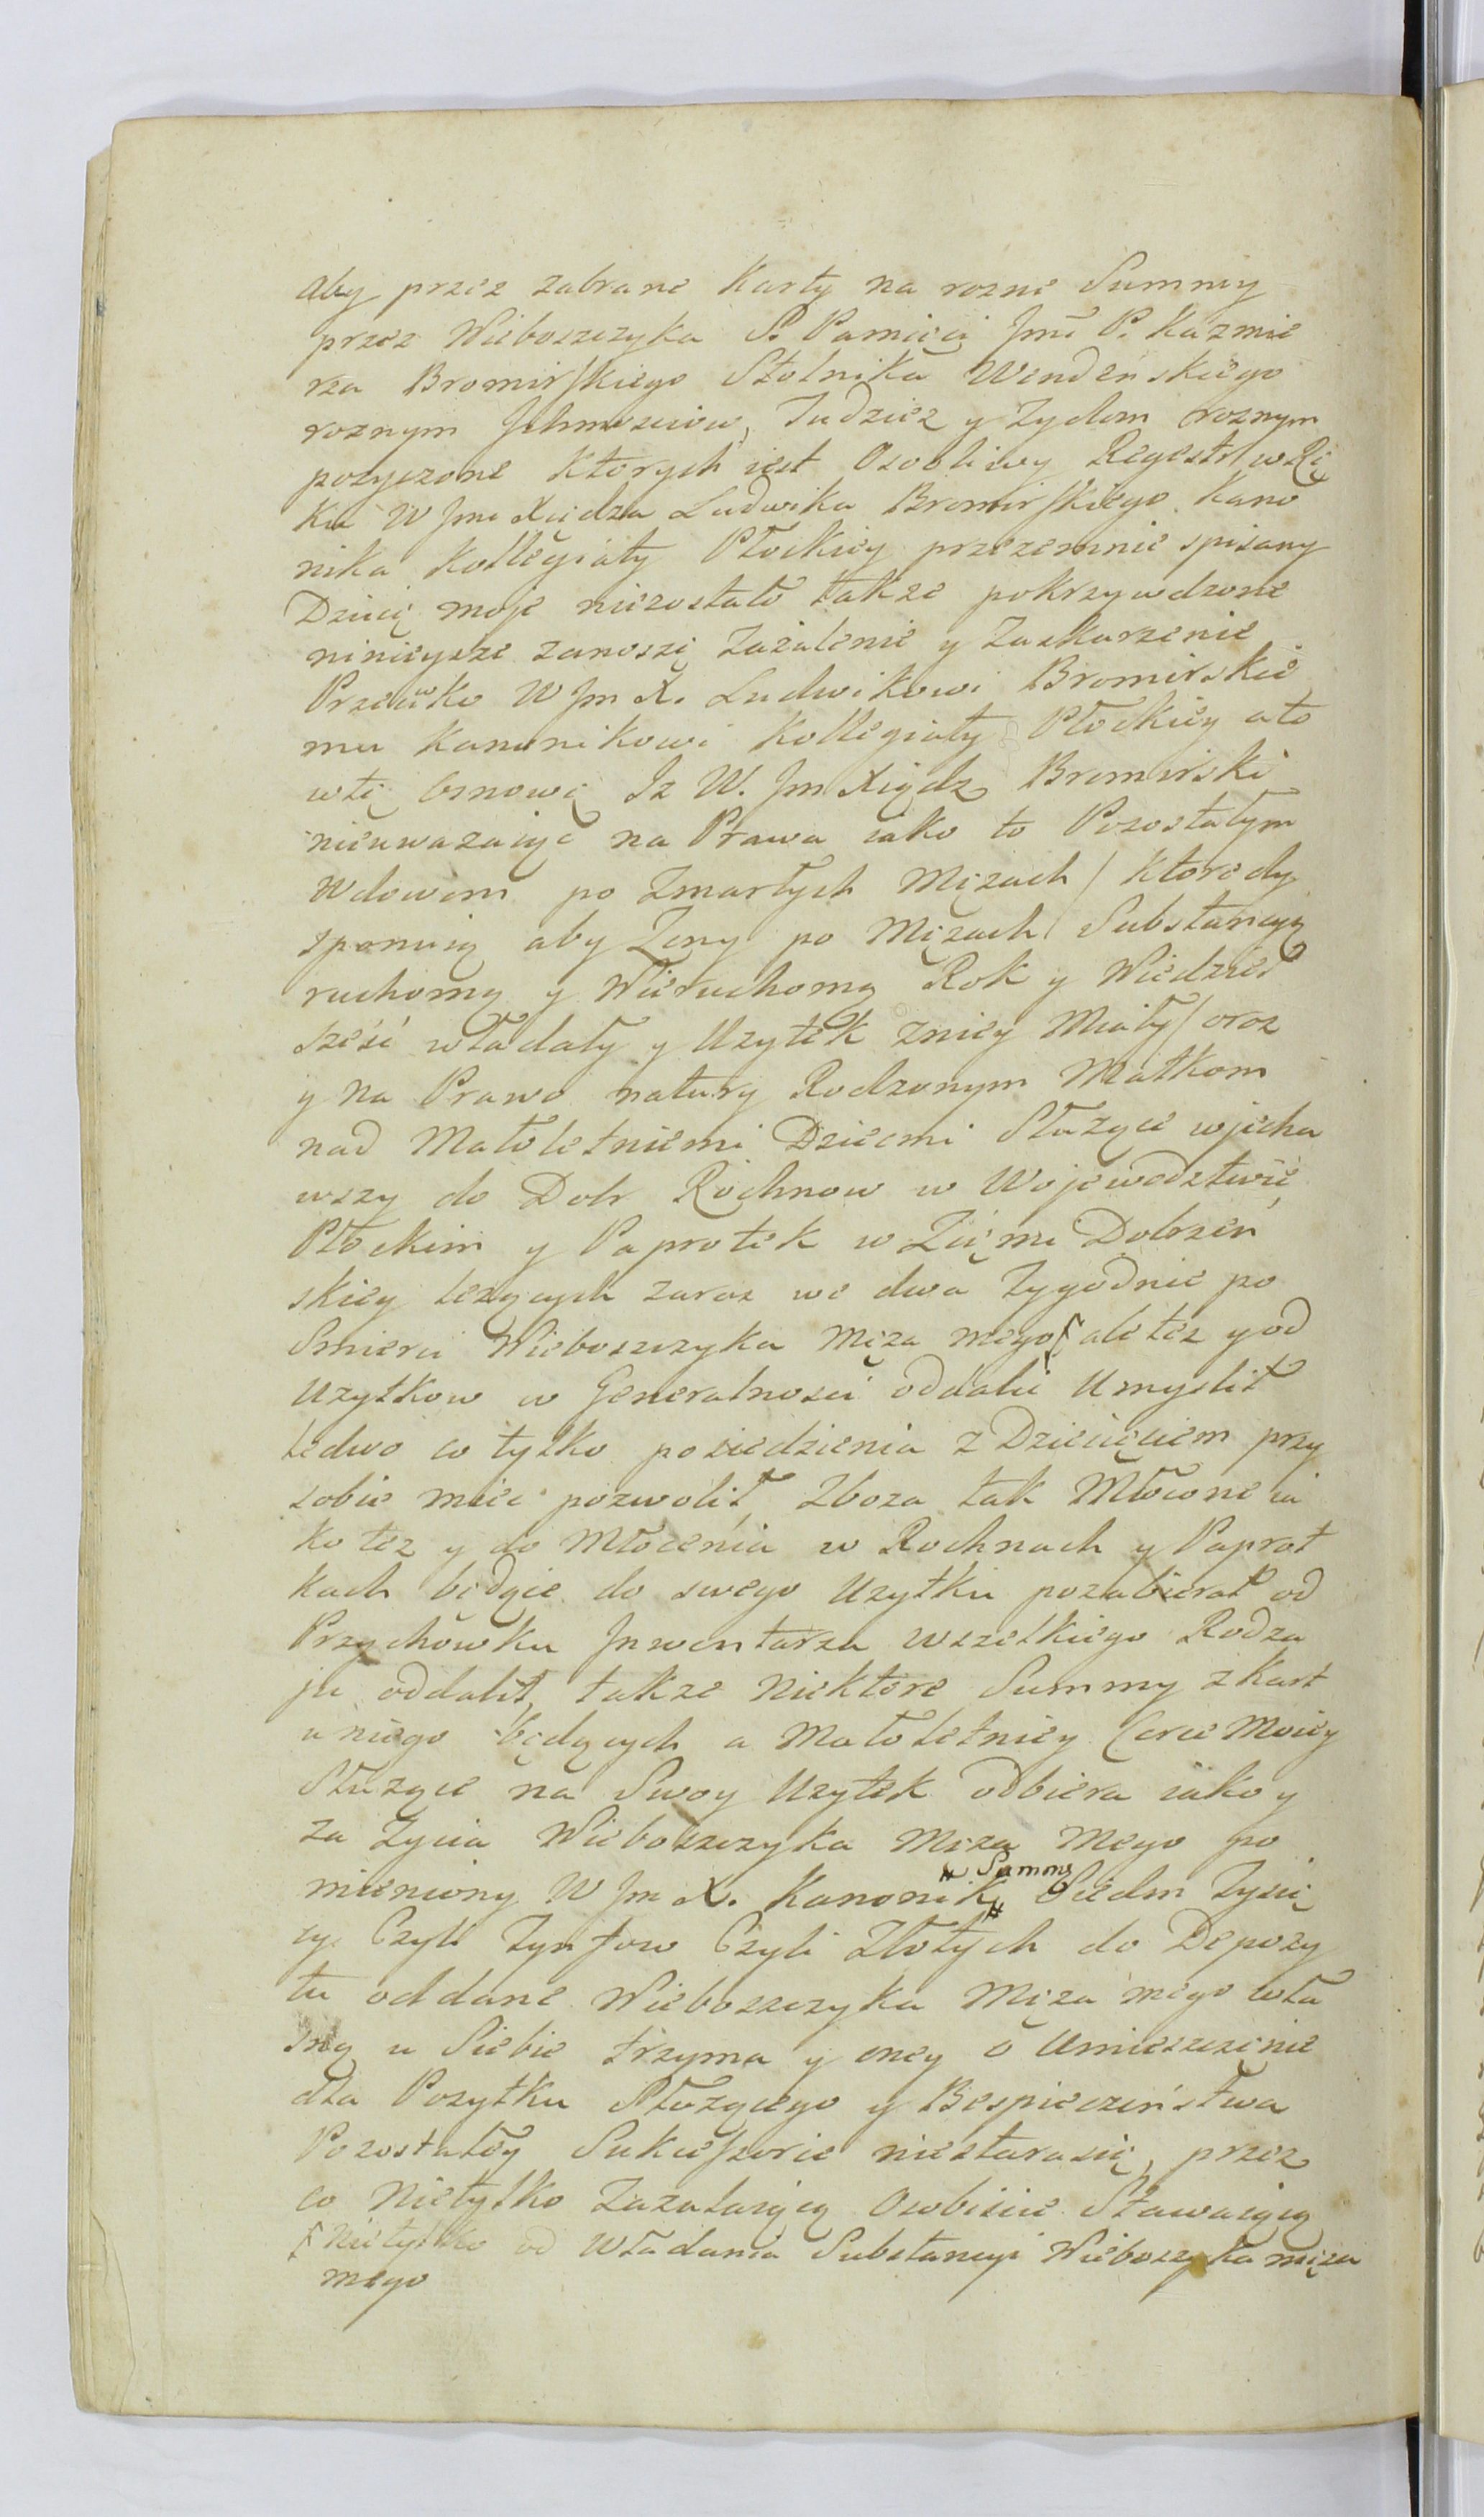 aby przez zabrane Karty na rozne Summy
przez Nieboszczyka S. Pamięci Jmć P. Kazmie
rza Bromirskiego Stolnika Wendeńskiego
roznym Ichmosciow, Tudziez y Zydom roznym
pozyczone Ktorych iest Osobliwy Regestr w Rę
Ku W Jmć Xiędza Ludwika Bromirskiego Kano
nika Kollegiaty Płockiey przezemnie spisany
Dziecię moje niezostało także pokrzywdzone
ninieysze zanoszę Zażalenie y Zaskarzenie
Przeciwko W Jm X. Ludwikowi Bromirskie
mu Kanonikowi Kollegiaty Płockiey ato
wtę Osnowę Iz W. Jm Xiądz Bromirski
nieuwazaiąc na Prawa iako to Pozostałym
Wdowom po Zmarłych Mężach / Ktore dy
sponuią aby Zony po Mężach Substancyą
ruchomą y Nieruchomą Rok y Niedziel
sześć władały y Uzytek zniey Miały / oraz
y na Prawo natury Rodzonym Matkom
nad Małoletniemi Dziecmi Służące wjecha
wszy do Dobr Rochnow w Wojewodztwie
Płockim y Paprotek w Ziemi Dobrzeń
skiey lezących zaraz we dwa Tygodnie po
Smierci Nieboszczyka Męza mego ſ ale tez y od
Uzytkow w Generalnosci oddalić Umyslił
ledwo co tylko posiedzienia z Dziecięciem przy
sobie mieć pozwolił, Zboza tak Młocone ia
ko tez y do Młocenia w Rochnach y Paprot
kach będące do swego Uzytku pozabierał od
Przychowku Inwentarza wszelkiego Rodza
ju oddalił, takze Niektore Summy z Kart
u niego będących a Małoletniey Corce Moiey
Służące na Swoy Uzytek odbiera iako y
za Zycia Nieboszczyka Męza Mego po
mieniony W Jm X. Kanonik # # Summę Siedm Tysię
cy Czyli Tynfow Czyli Złotych do Depozy
tu oddane Nieboszczyka Męza mego wła
sną u Siebie trzyma y oney o Umieszczenie
dla Pozytku Służącego y Bespieczeństwa
Pozostałey Sukcessorce niestarasię, przez
co Nietylko Zazalaiącą Osobiscie Stawaiącą
ſ Nietylko od Władania Substancyi Nieboszyka męza
mego